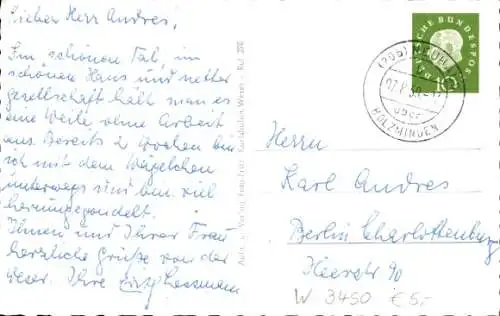 Lieber Herr Andres!
Im schönen Tal, im
schönen Haus und netter
gesellschaft hält man es
eine Weile ohne Arbeit
aus. Bereits 2 Wochen bin
ich mit dem Wägelchen
unterwegs und bin viel
herumgegondelt.
Ihnen und Ihrer Frau
herzliche Grüße von der
Weser. Ihre
DEUTSCHE BUNDESPOST
10
HOLZMINDEN
Herrn
Karl Andres
Berlin Charlottenburg
Heerstr 90
W 3450 € 5,-